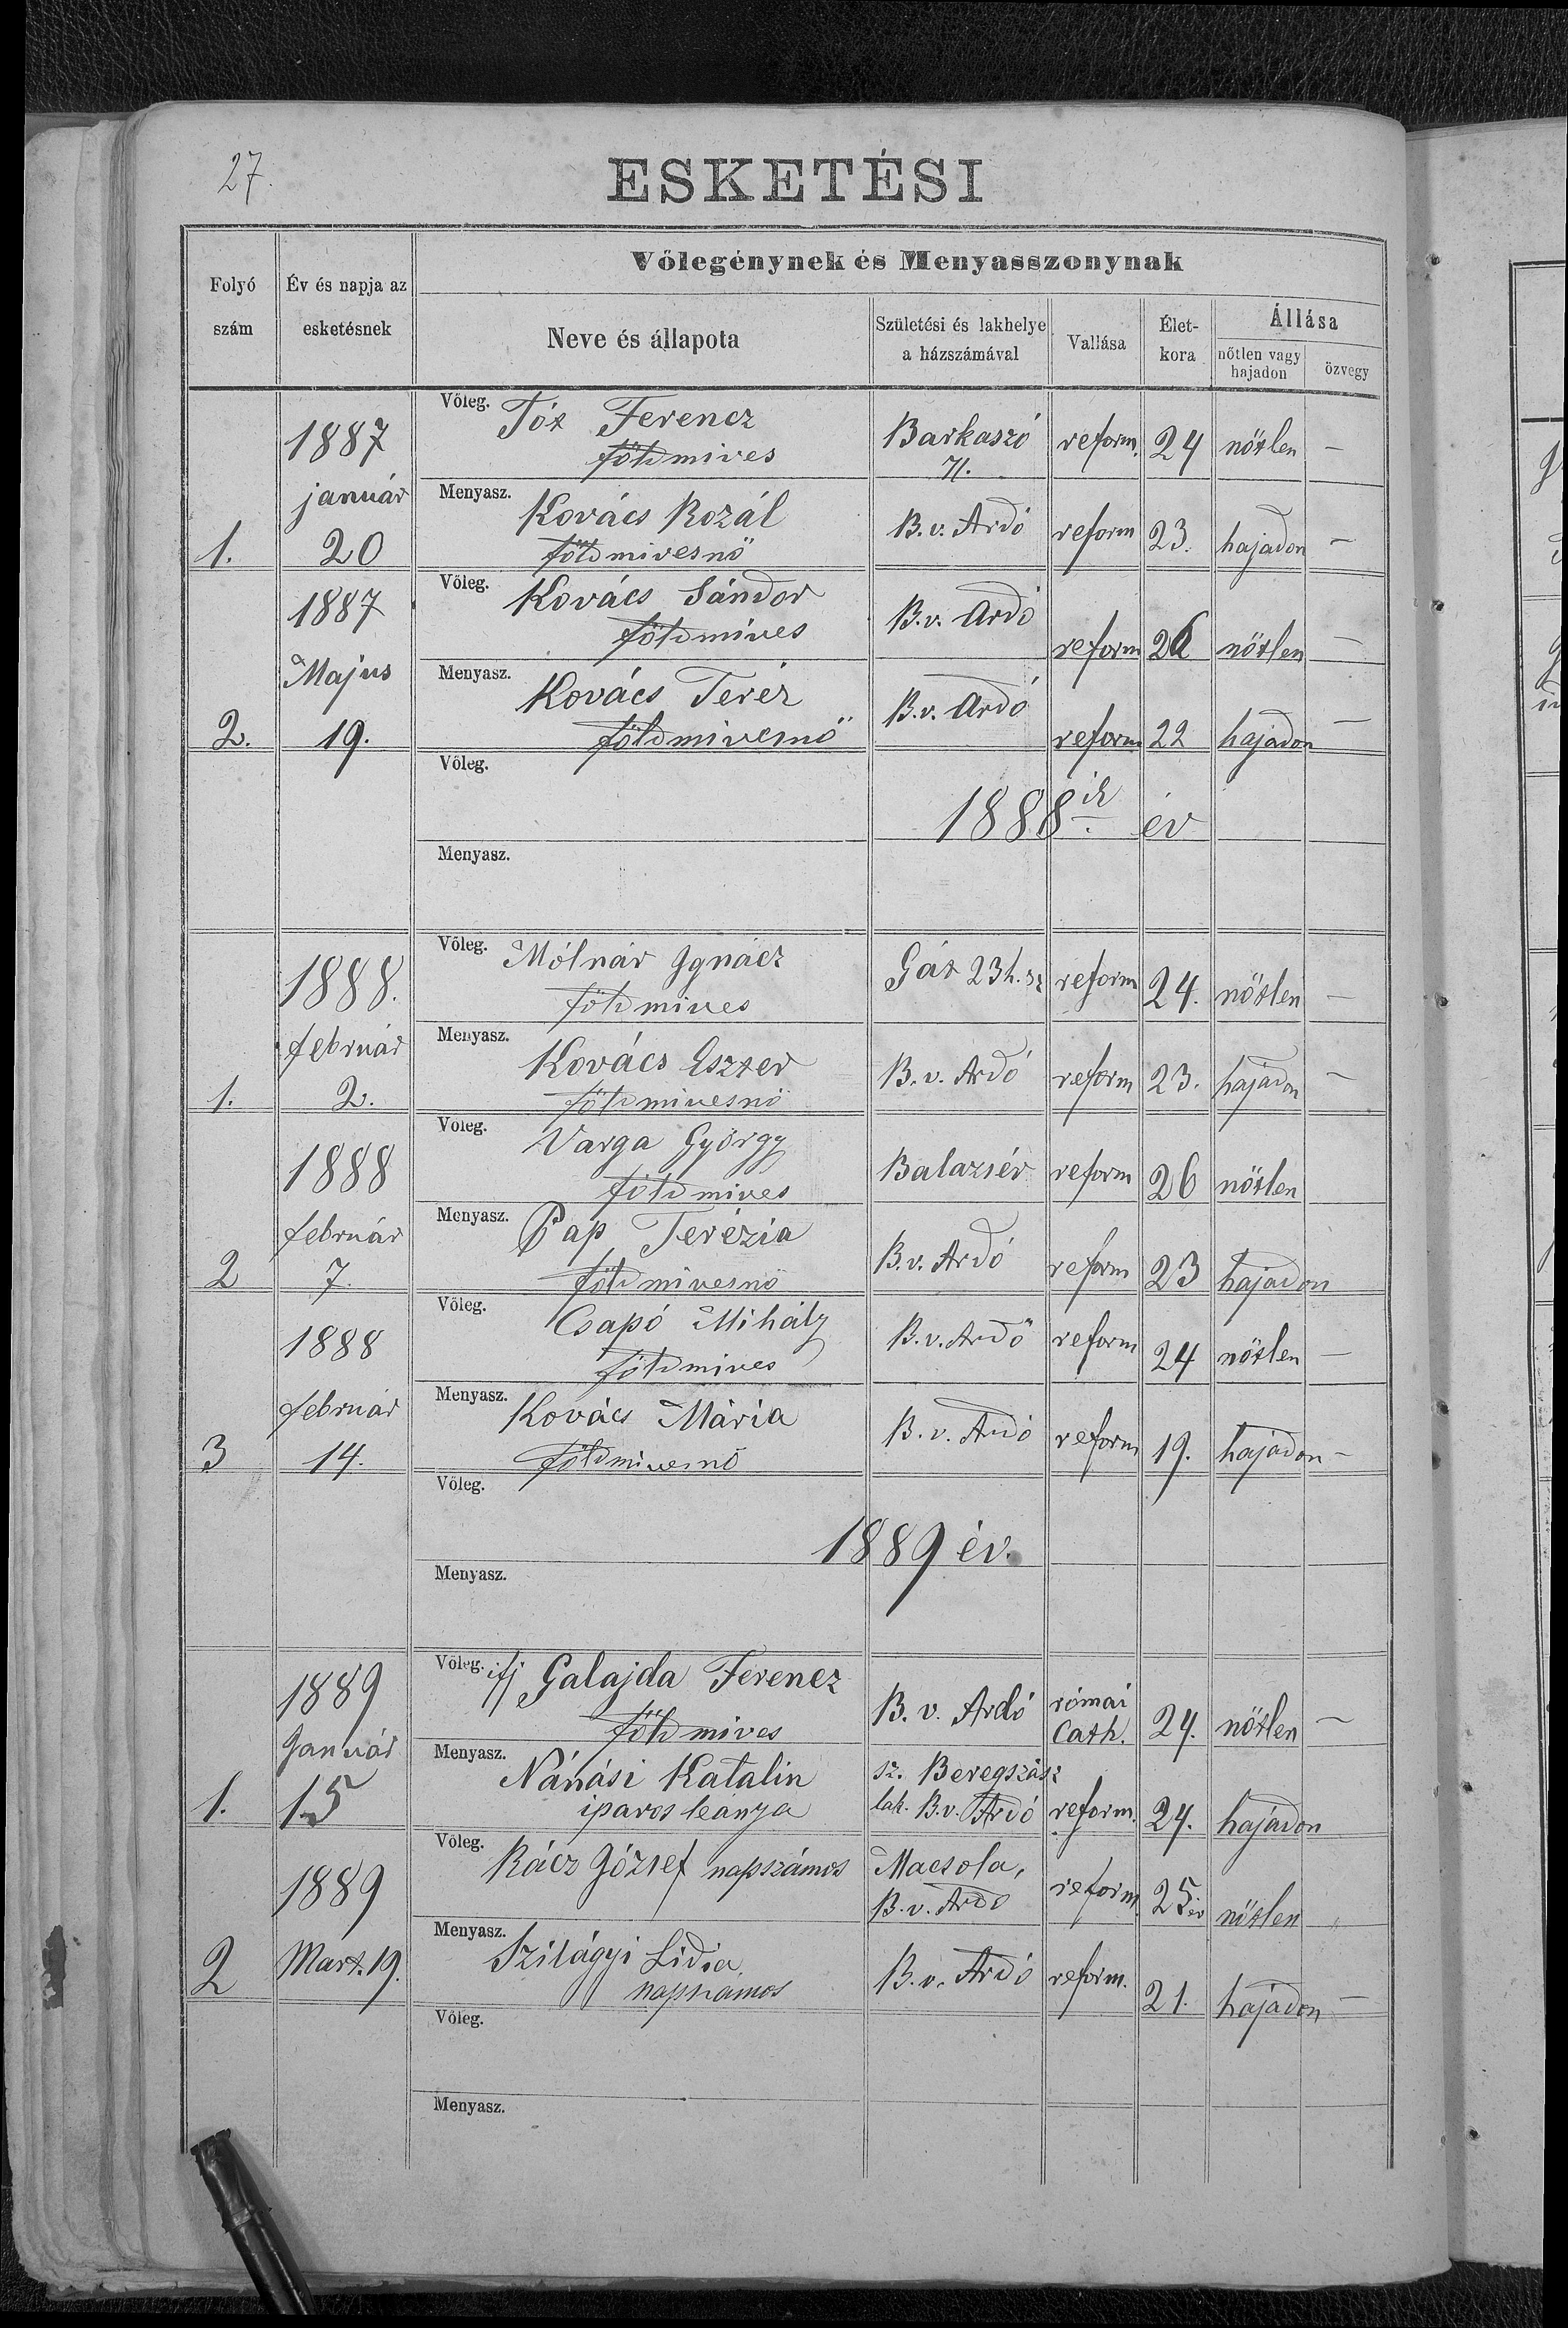 27.
ESKETÉSI
Folyó szám
Év és napja az esketésnek
Vőlegénynek és Menyasszonynak
Neve és állapota
Születési és lakhelye a házszámával
Vallása
Élet-kora
Állása
nőtlen vagy hajadon
özvegy
1887 január 20
1.
Vőleg. Tót Ferencz
földmives
Barkaszó 71. reform. 24 nötlen –
Menyasz. Kovács Rozál
földmivesnö
B. v. Ardó reform 23. hajadon –
1887 Majus 19.
2.
Vőleg. Kovács Sándor
földmives
B. v. Ardó reform 26 nötlen –
Menyasz. Kovács Teréz
földmivesnö
B. v. Ardó reform 22 hajadon –
Vőleg.
1888ik év
Menyasz.
1888. február 2.
1.
Vőleg. Mólnár Ignácz
földmives
Gát 23 h. sz reform 24. nötlen –
Menyasz. Kovács Eszter
földmivesnö
B. v. Ardó reform 23. hajadon –
1888 február 7.
2
Vőleg. Varga György
földmives
Balazsér reform 26 nötlen
Menyasz. Pap Terézia
földmivesnö
B. v. Ardó reform 23 hajadon
1888 február 14.
3
Vőleg. Csapó Mihály
földmives
B. v. Ardó reform 24 nötlen –
Menyasz. Kovács Mária
földmivesnö
B. v. Ardó reform 19. hajadon –
Vőleg.
1889 év.
Menyasz.
1889 Január 15
1.
Vőleg. ifj Galajda Ferencz
földmives
B. v. Ardó római Cath. 24. nötlen –
Menyasz. Nánási Katalin
iparos leánya
sz. Beregszász
lak. B. v. Ardó reform. 24. hajadon
1889 Mart. 19.
2
Vőleg. Rácz József napszámos
Macsola,
B. v. Ardó reform. 25 év nötlen „
Menyasz. Szilágyi Lidia
napszámos
B. v. Ardó reform. 21. hajadon –
Vőleg.
Menyasz.